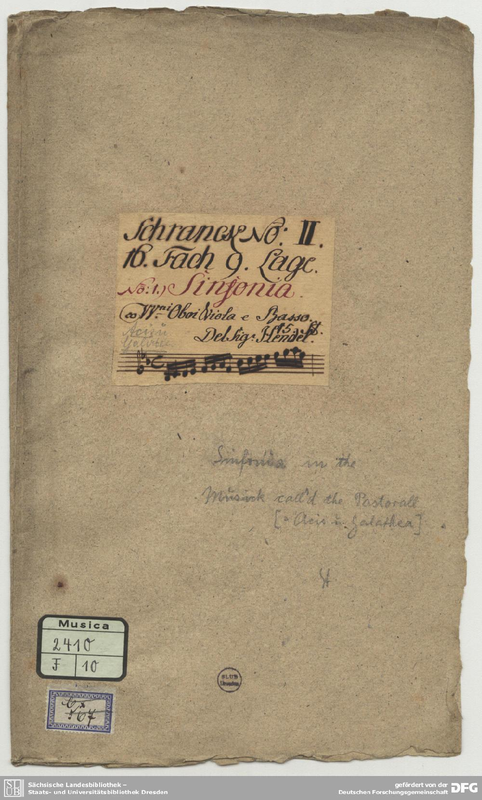 Schranck No: II.
16. Fach 9. Lage.
No: 1.) Sinfonia.
co Wni Oboi Viola e Basso.
Del Sigr Hendel.
Sinfonia in the
Musick call'd the Pastorall
[= Acis u. Galathea]
Musica
2410
F 10
SLUB
Dresden
Sächsische Landesbibliothek –
Staats- und Universitätsbibliothek Dresden
gefördert von der
Deutschen Forschungsgemeinschaft
DFG